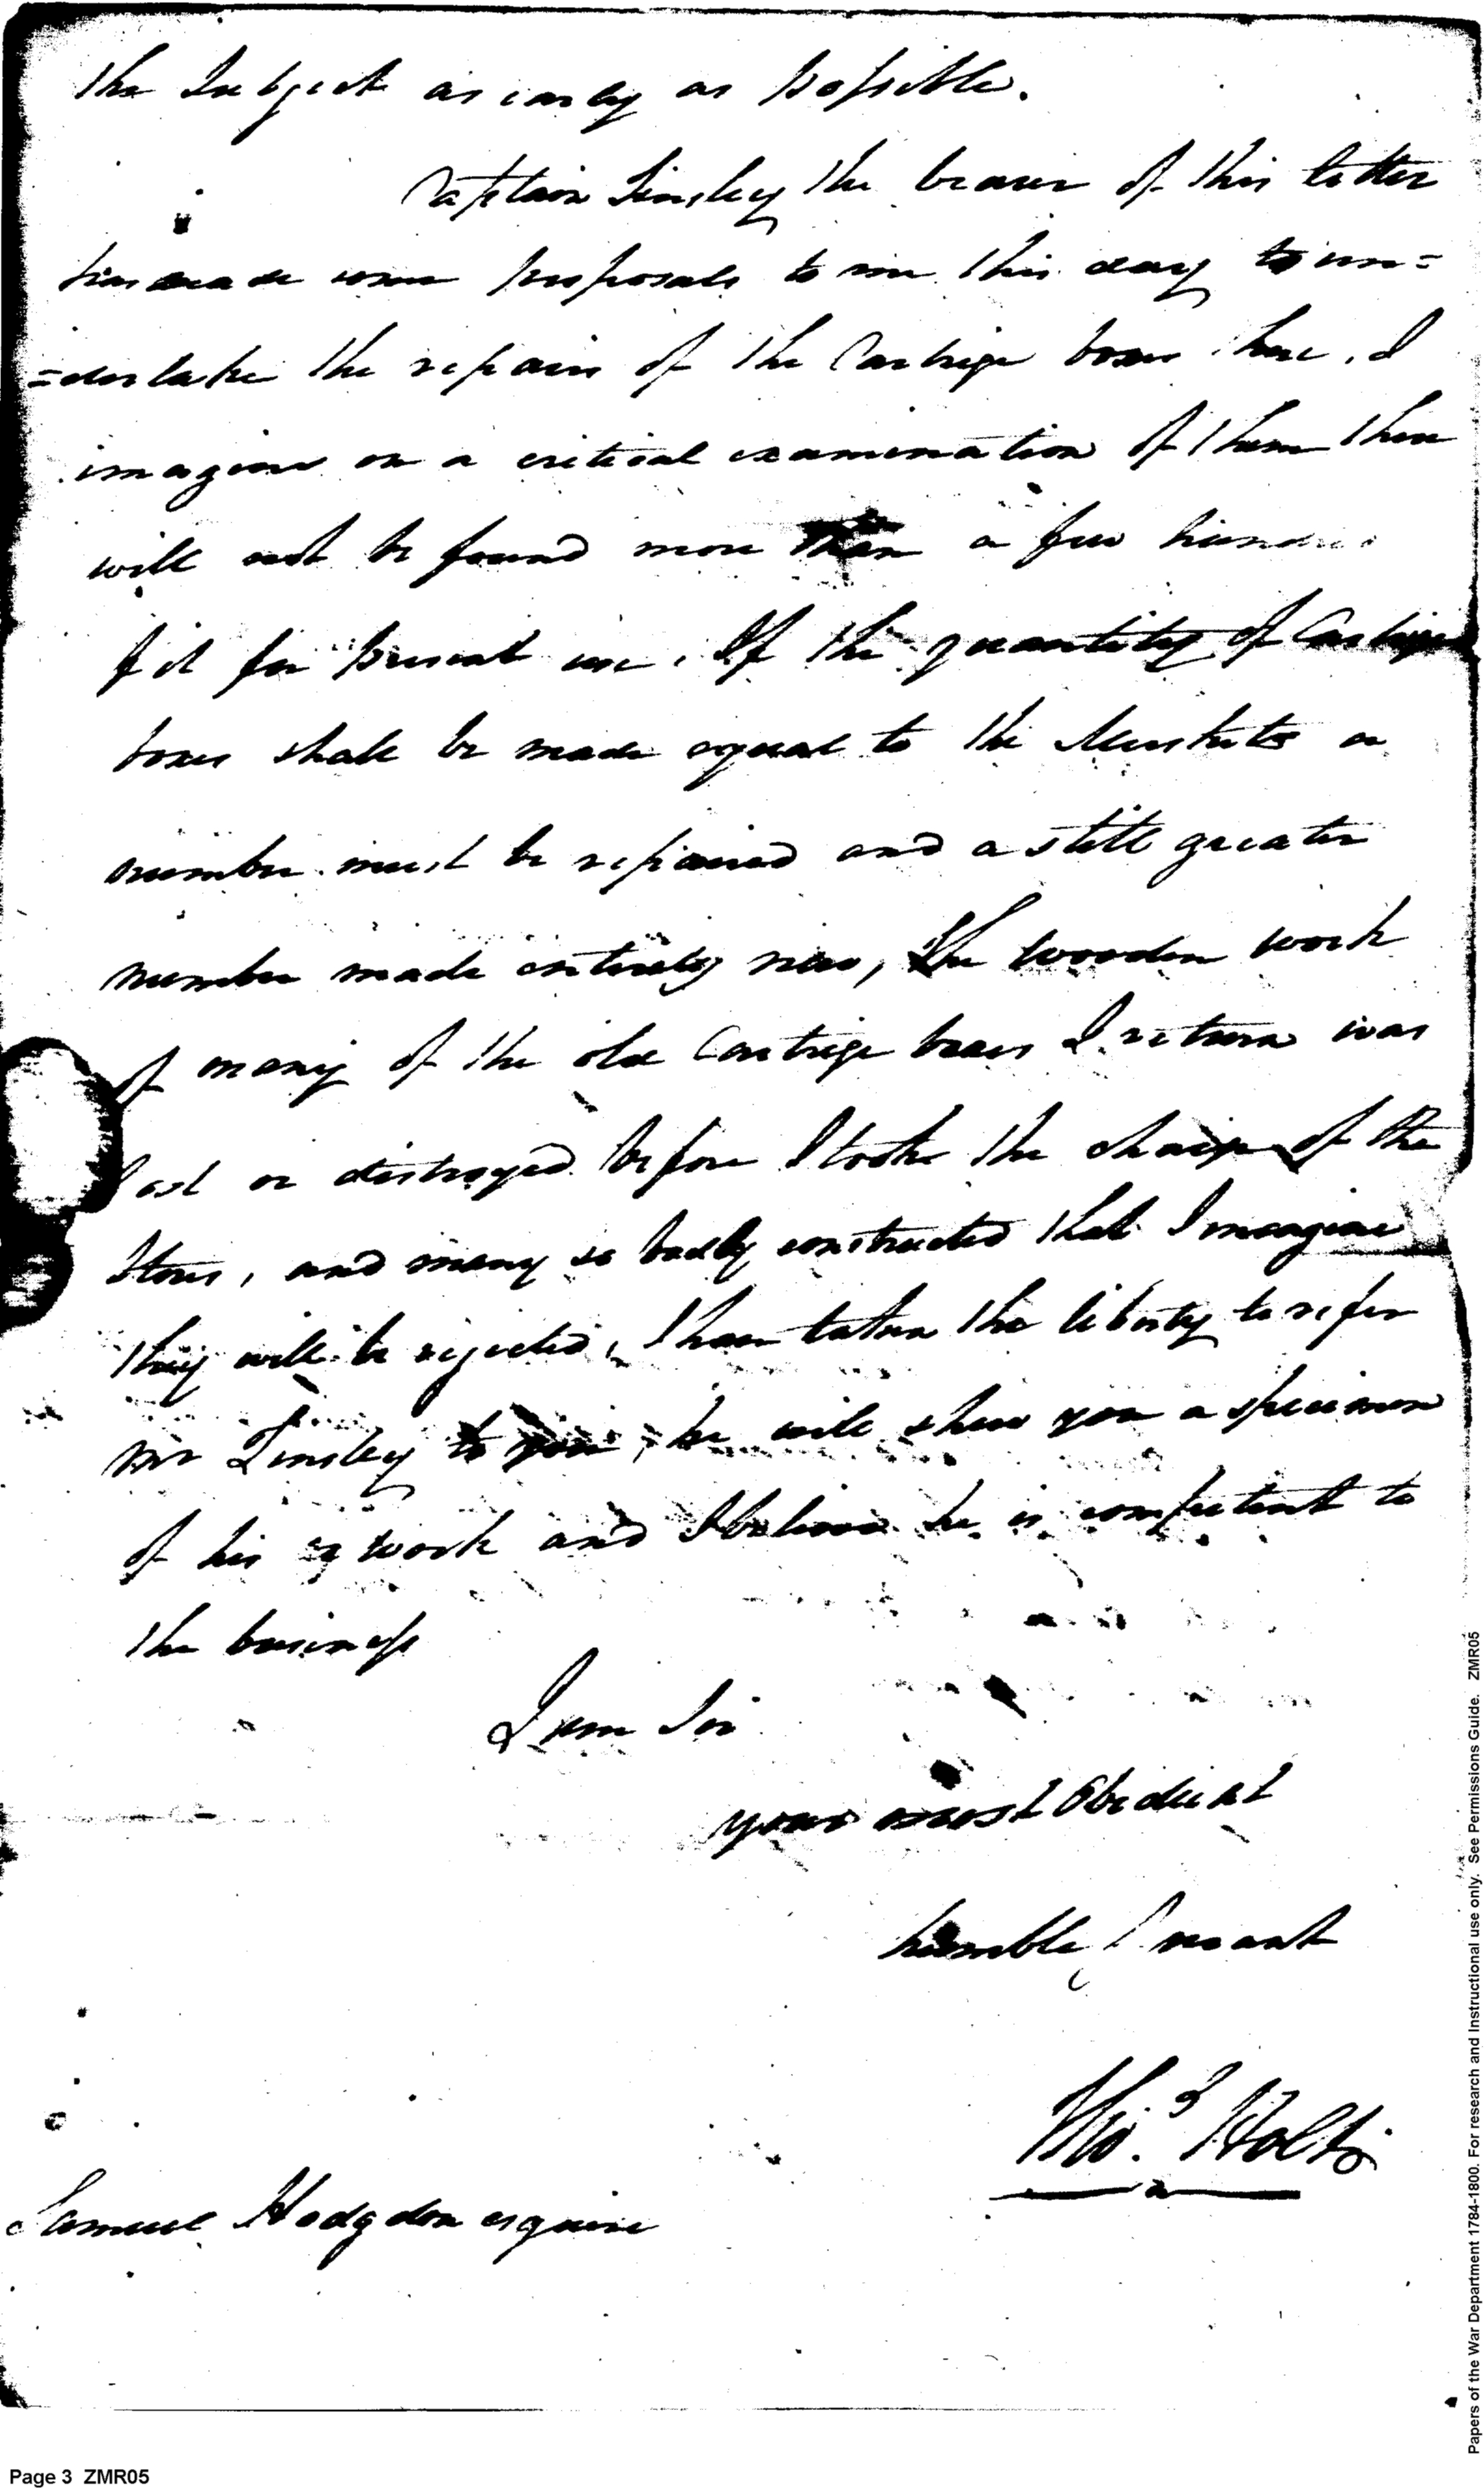 the Subject as early as possible.
Captain Tinsley the bearer of this letter
has made some proposals to me this day to un=
=dertake the repairs of the Cartrige boxes here, I
imagine on a critical examination of them there
will not be found more than a few hundred
fit for present use. If the quantity of Cartrige
boxes shall be made equal to the Muskets a
number must be repaired and a still greater
number made entirely new, the wooden work
of many of the old Cartrige boxes I return was
lost or destroyed before I took the charge of the
Stores, and many so badly constructed that I imagine
they will be rejected, I have taken the liberty to refer
Mr Tinsley to you, he will shew you a specimen
of his work and I believe he is competent to
the business
I am Sir
your most Obedient
humble Servant
Tho.s Holt
Samuel Hodgdon esquire
Page 3 ZMR05
Papers of the War Department 1784-1800. For research and Instructional use only. See Permissions Guide. ZMR05